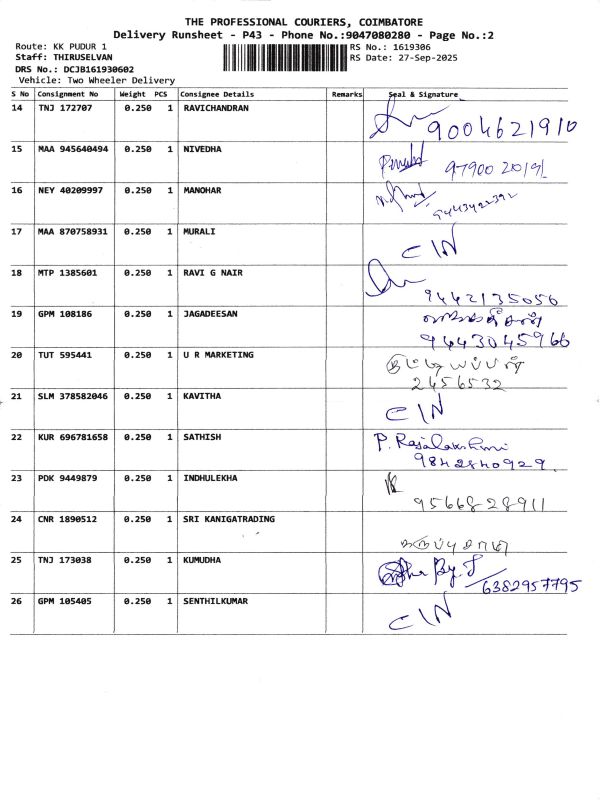 THE PROFESSIONAL COURIERS, COIMBATORE
Delivery Runsheet - P43 - Phone No.:9047080280 - Page No.:2
Route: KK PUDUR 1
RS No.: 1619306
Staff: THIRUSELVAN
RS Date: 27-Sep-2025
DRS No.: DCJB161930602
Vehicle: Two Wheeler Delivery
S No Consignment No Weight PCS Consignee Details Remarks Seal & Signature
14 TNJ 172707 0.250 1 RAVICHANDRAN
9004621910
15 MAA 945640494 0.250 1 NIVEDHA
16 NEY 40209997 0.250 1 MANOHAR
17 MAA 870758931 0.250 1 MURALI
C IN
18 MTP 1385601 0.250 1 RAVI G NAIR
9442135056
19 GPM 108186 0.250 1 JAGADEESAN
9443045966
20 TUT 595441 0.250 1 U R MARKETING
2456532
21 SLM 378582046 0.250 1 KAVITHA
C IN
22 KUR 696781658 0.250 1 SATHISH
P. Rajalakshmi
9842840929
23 PDK 9449879 0.250 1 INDHULEKHA
9566828911
24 CNR 1890512 0.250 1 SRI KANIGATRADING
கருப்புசாமி
25 TNJ 173038 0.250 1 KUMUDHA
6382957795
26 GPM 105405 0.250 1 SENTHILKUMAR
C IN